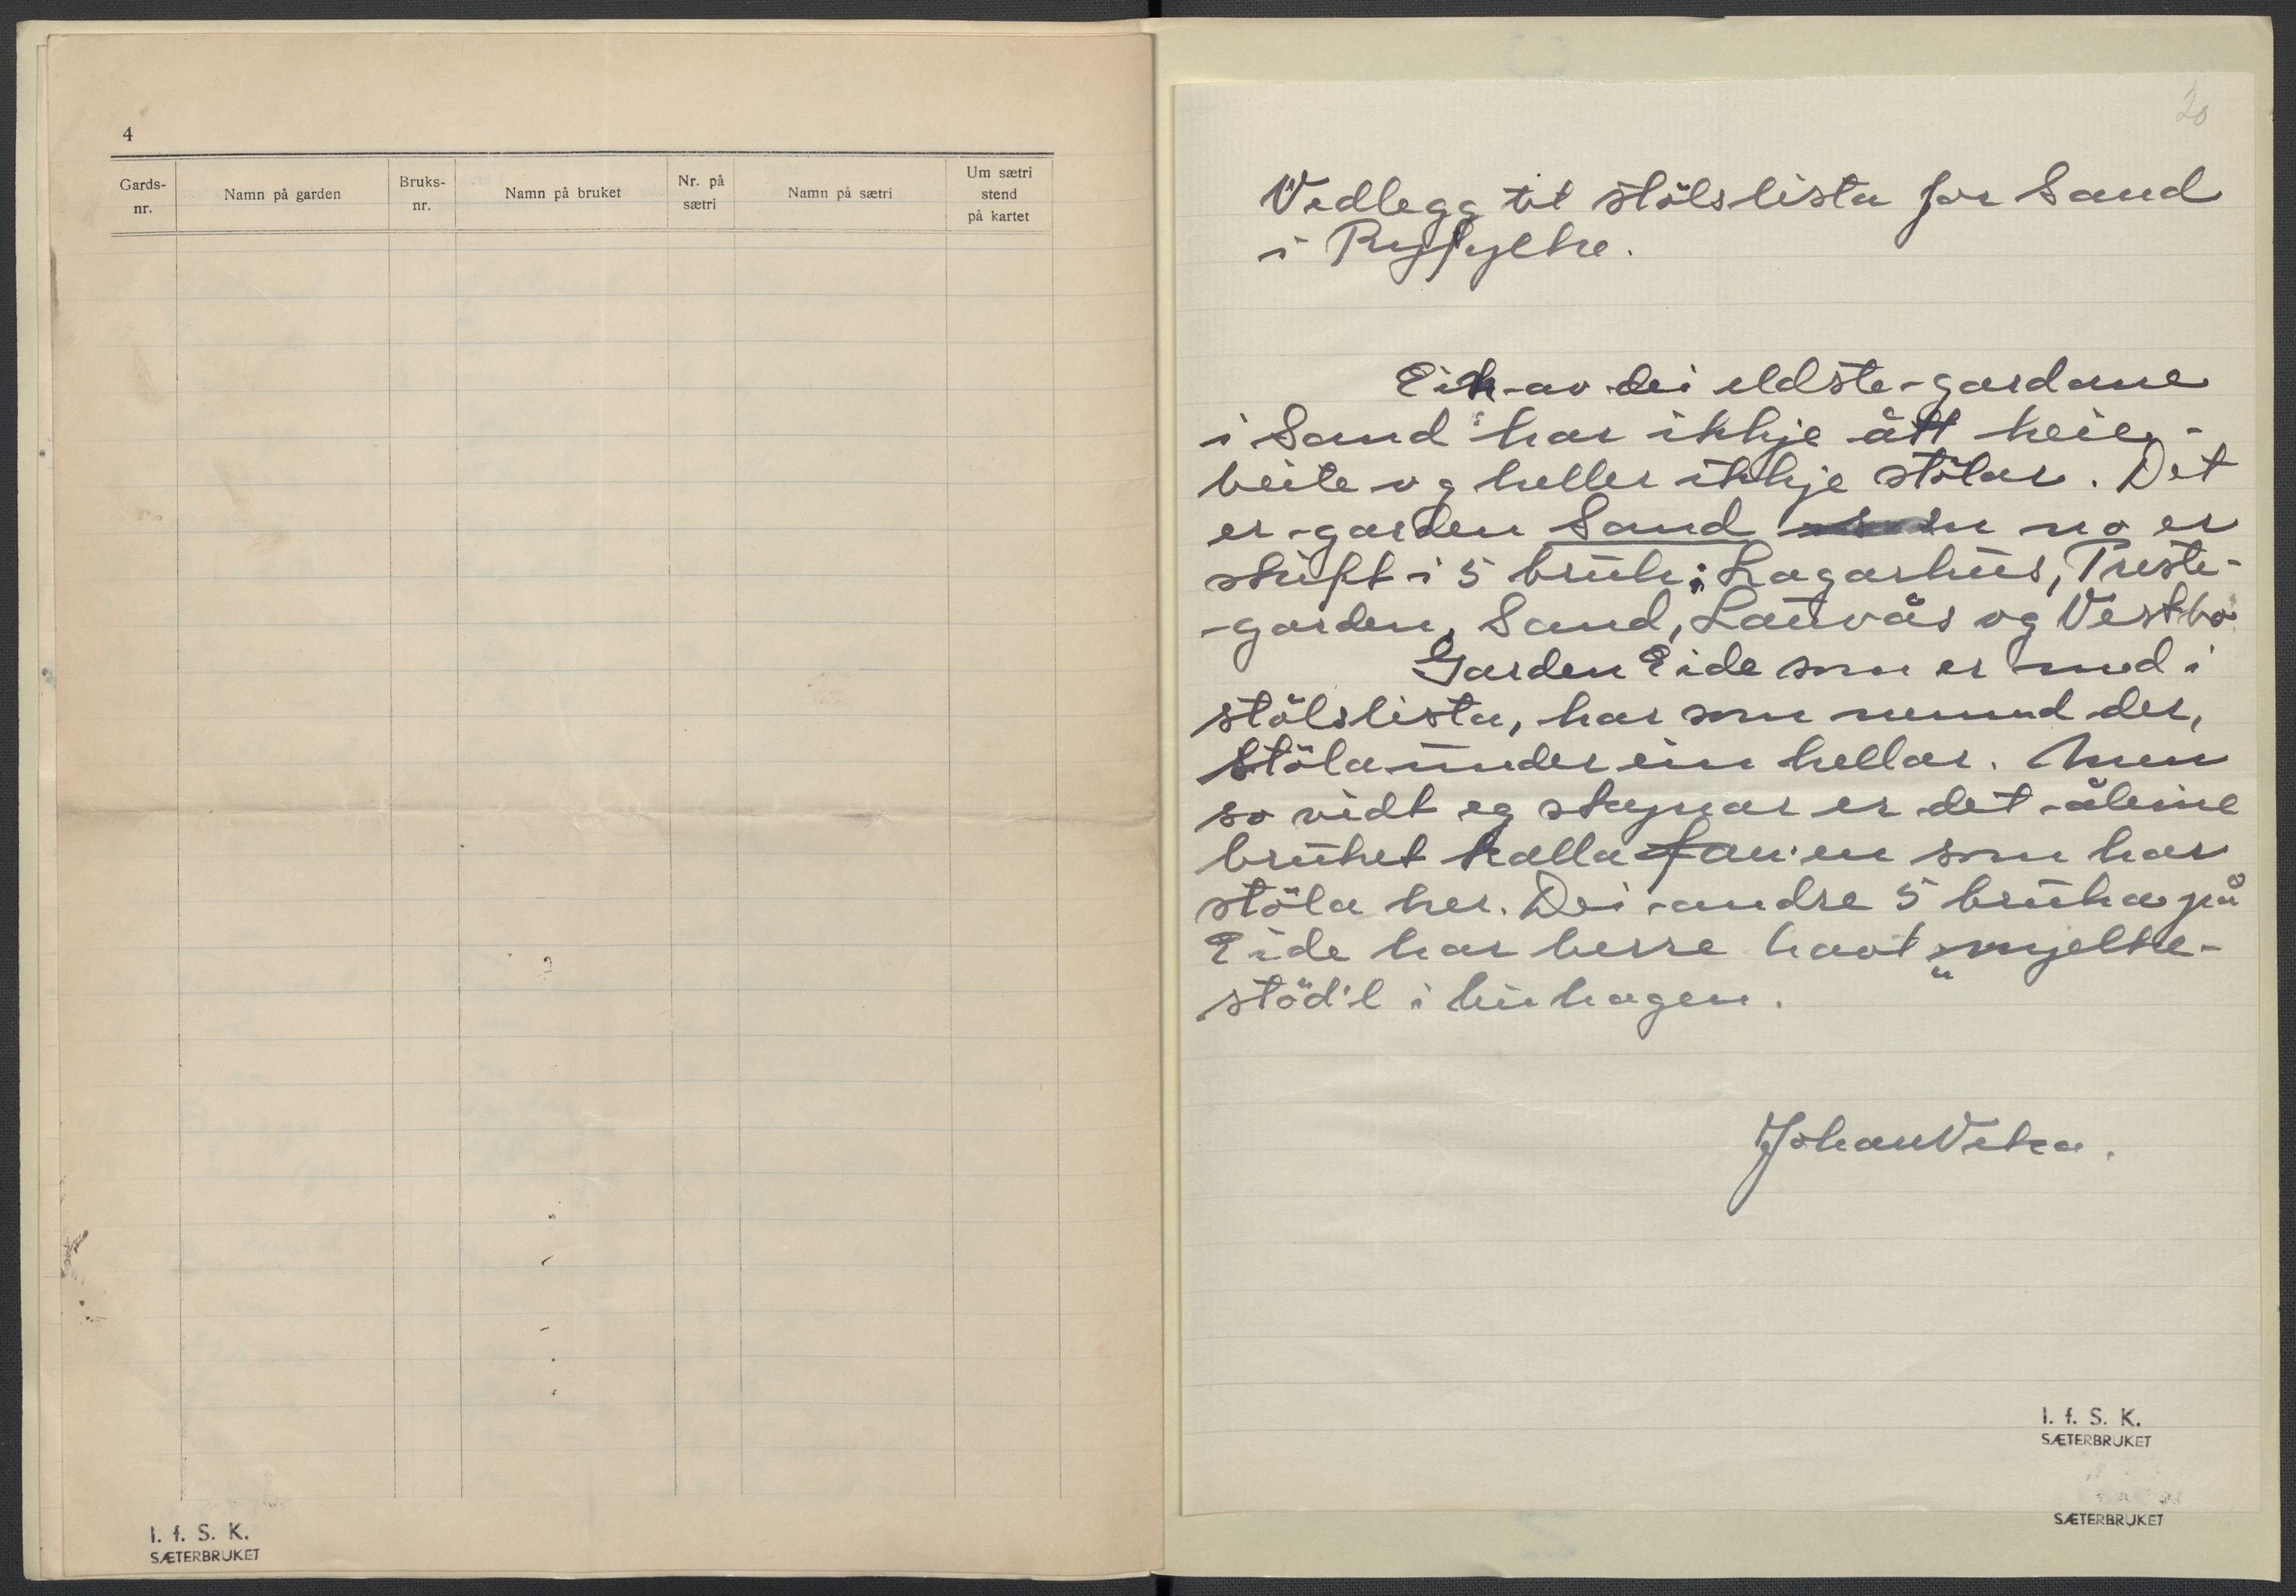 4
Gards-
nr.
Namn på garden
Bruks-
nr.
Namn på bruket
Nr. på
sætri
Namn på sætri
Um sætri
stend
på kartet
I. f. S. K.
SÆTERBRUKET
20
Vedlegg til stölslista for Sand
i Ryfylke.
Ein av dei eldste gardane
i Sand har ikkje ått heie-
beite og heller ikkje stölar. Det
er garden Sand som no er
skift i 5 bruk: Lagarhus, Preste-
garden, Sand, Lauvås og Vestbø
Garden Eide som er med i
stölslista, har som nemnd der,
støla under ein hellar. Men
so vidt eg skynar er det åleine
bruket kalla som har
støla her. Dei andre 5 bruka på
Eide har berre havt "mjølke-
stöd'l i huhagen.
Johan Veka.
I. f. S. K.
SÆTERBRUKET
SÆTERBRUKET